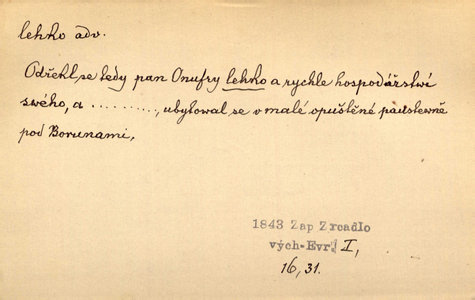 lehko adv.
Odřekl se tedy pan Onufry lehko a rychle hospodářstwí
swého, a .........., ubytowal se v malé opuštěné pastewně
pod Borunami,
1843 Zap Zrcadlo
vých-Evr. I,
16, 31.